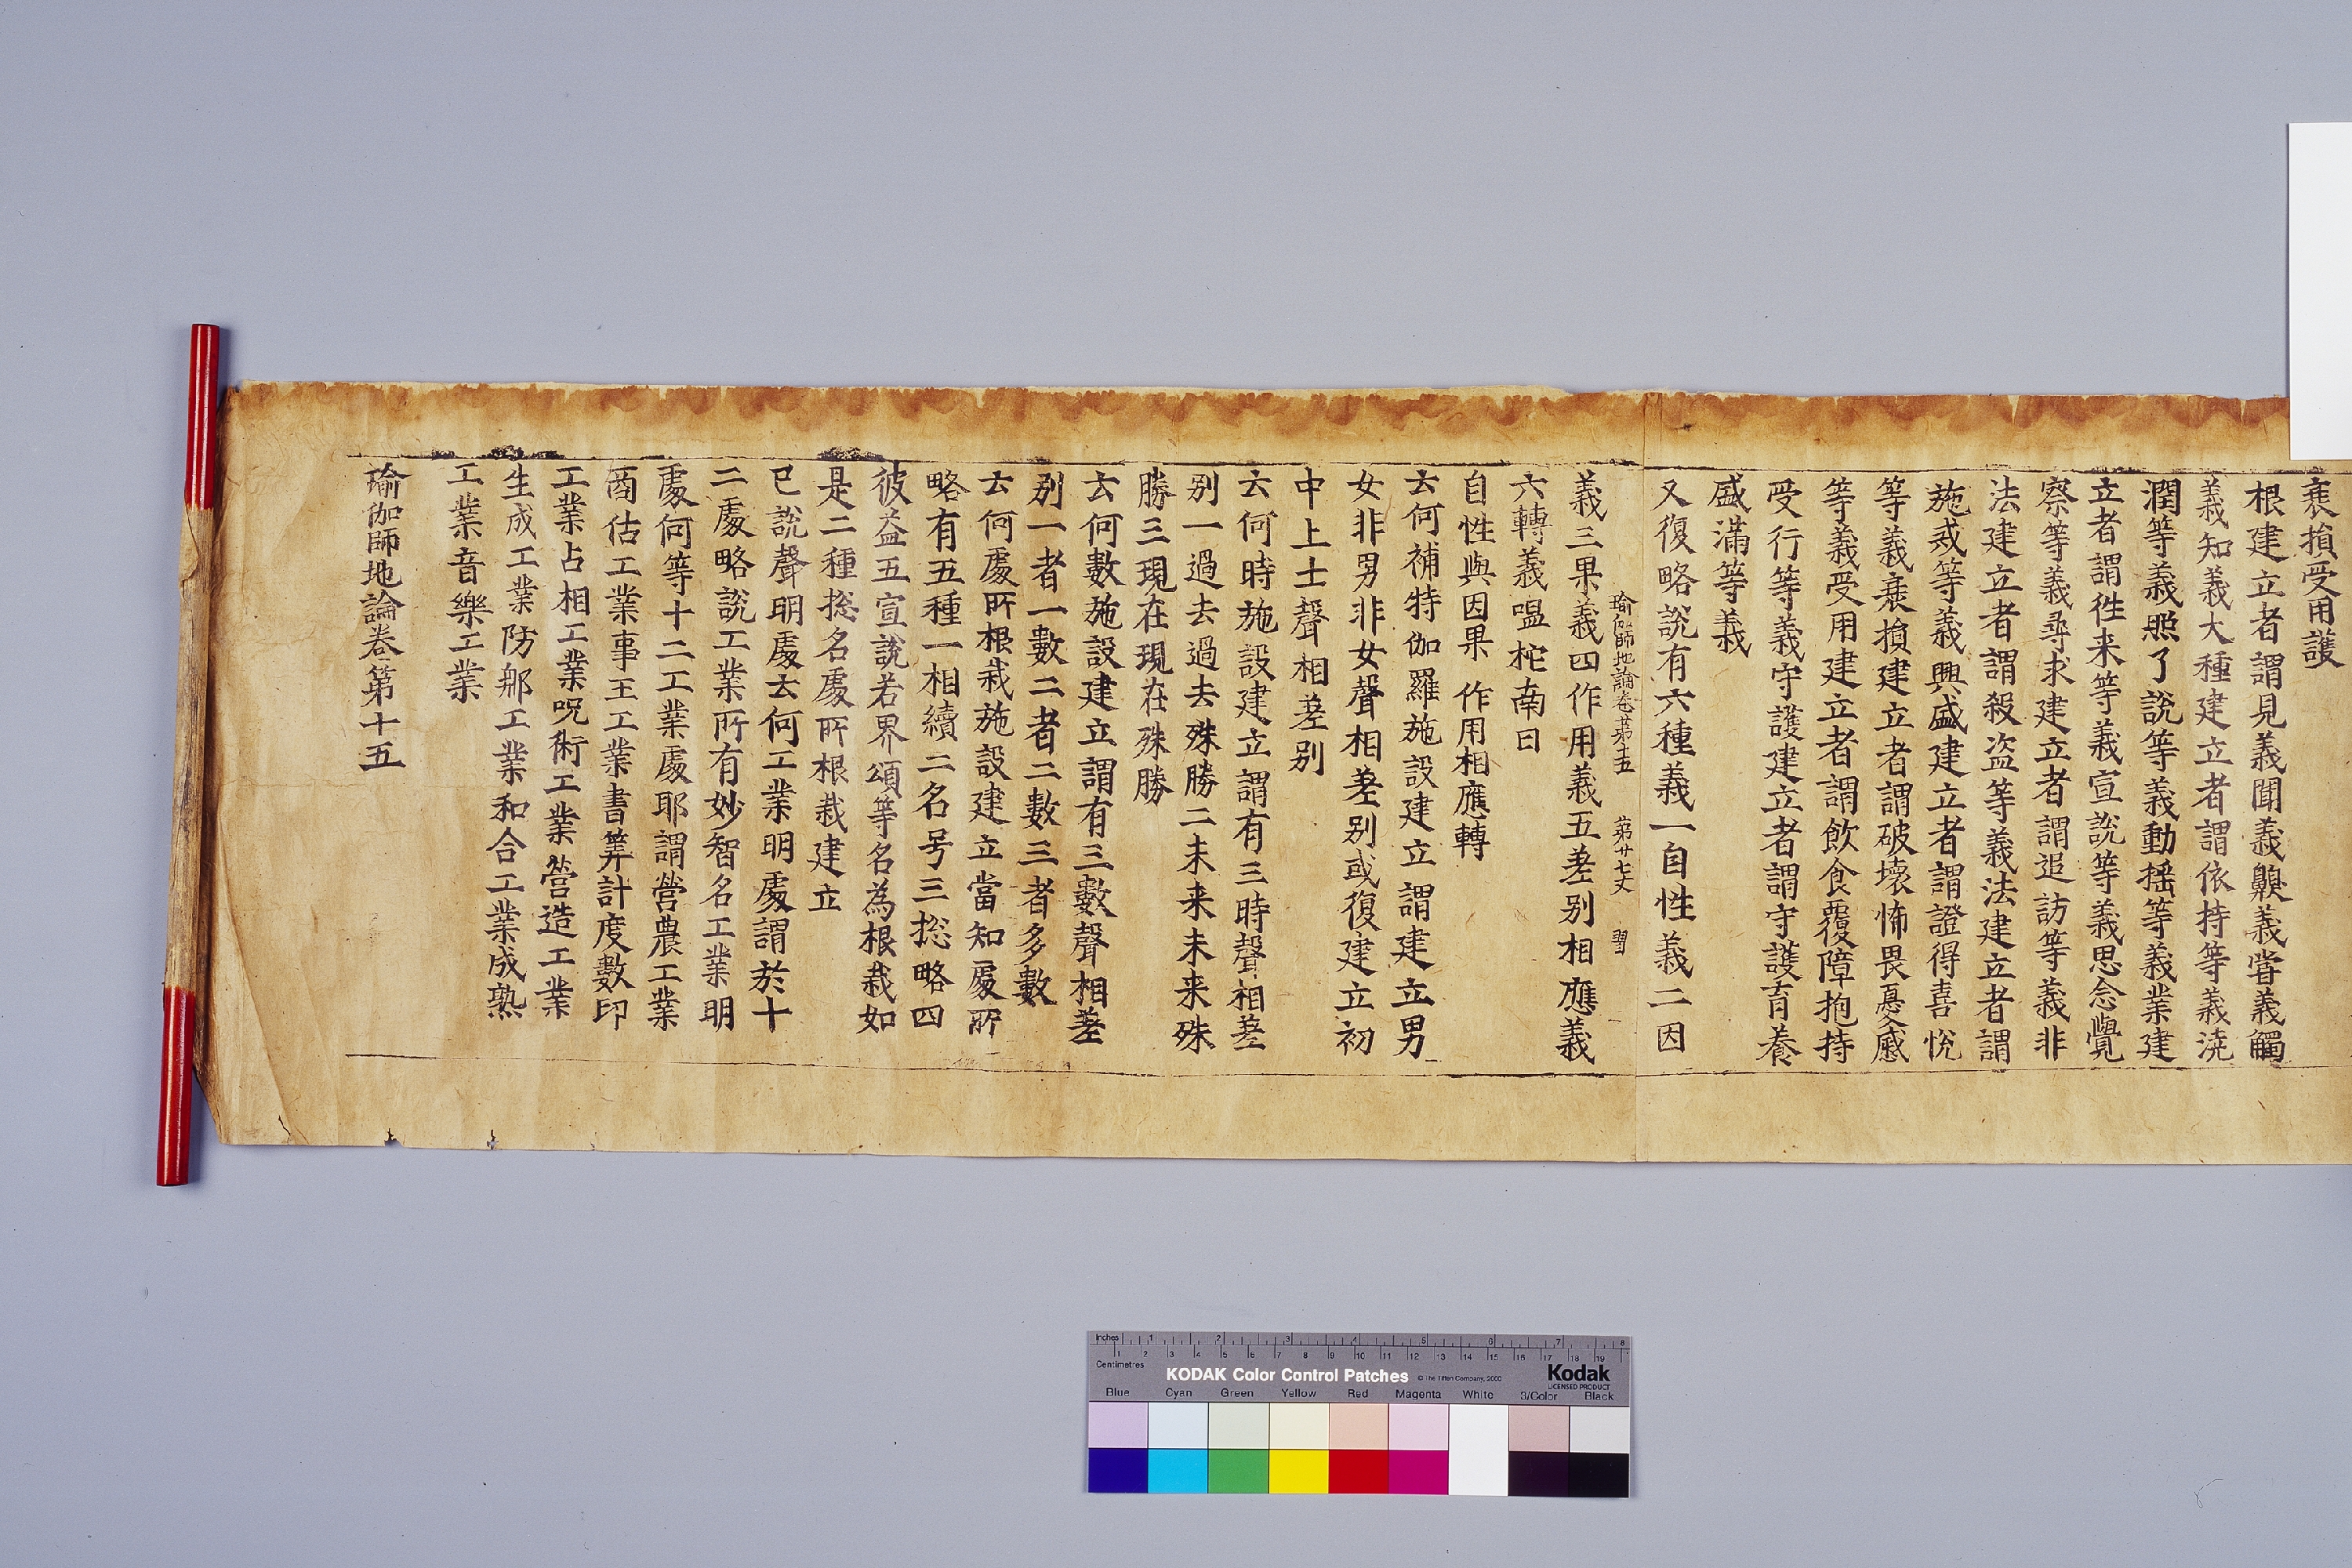 衰損受用護
根建立者謂見義聞義齅義甞義觸
義知義大種建立者謂依持等義澆
潤等義照了說等義動搖等義業建
立者謂徃来等義宣說等義思念覺
察等義尋求建立者謂追訪等義非
法建立者謂殺盜等義法建立者謂
施戒等義興盛建立者謂證得喜悅
等義衰損建立者謂破壞怖畏憂慼
等義受用建立者謂飲食覆障抱持
受行等義守護建立者謂守護育養
盛滿等義
又復略說有六種義一自性義二因
瑜伽師地論卷苐十五 苐廿七丈 習
義三果義四作用義五差別相應義
六轉義嗢柁南曰
自性與因果 作用相應轉
云何補特伽羅施設建立謂建立男
女非男非女聲相差別或復建立初
中上士聲相差別
云何時施設建立謂有三時聲相差
別一過去過去殊勝二未来未来殊
勝三現在現在殊勝
云何數施設建立謂有三數聲相差
別一者一數二者二數三者多數
云何處所根栽施設建立當知處所
略有五種一相續二名号三捴略四
彼益五宣說若界頌等名為根栽如
是二種捴名處所根栽建立
已說聲明處云何工業明處謂於十
二處略說工業所有妙智名工業明
處何等十二工業處耶謂營農工業
商估工業事王工業書筭計度數印
工業占相工業呪術工業營造工業
生成工業防𨚗工業和合工業成熟
工業音樂工業
瑜伽師地論卷第十五
Inches 1 2 3 4 5 6 7 8
Centimetres 1 2 3 4 5 6 7 8 9 10 11 12 13 14 15 16 17 18 19
KODAK Color Control Patches © The Tiffen Company, 2000 Kodak
LICENSED PRODUCT
Blue Cyan Green Yellow Red Magenta White 3/Color Black